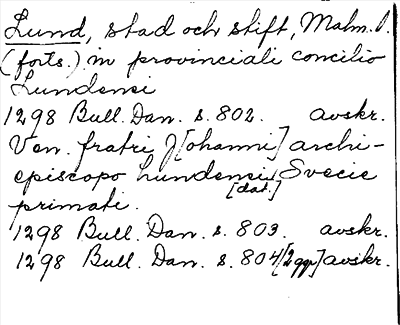 Lund, stad och stift, Malm. l.
(forts.) in provinciali concilio
Lundensi
1298 Bull. Dan. s. 802. avskr.
Ven. fratri J[ohanni] archi-
episcopo Lundensi, Svecie
[dat.]
primati.
1298 Bull. Dan. s. 803. avskr.
1298 Bull. Dan. s. 804 [2 ggr] avskr.